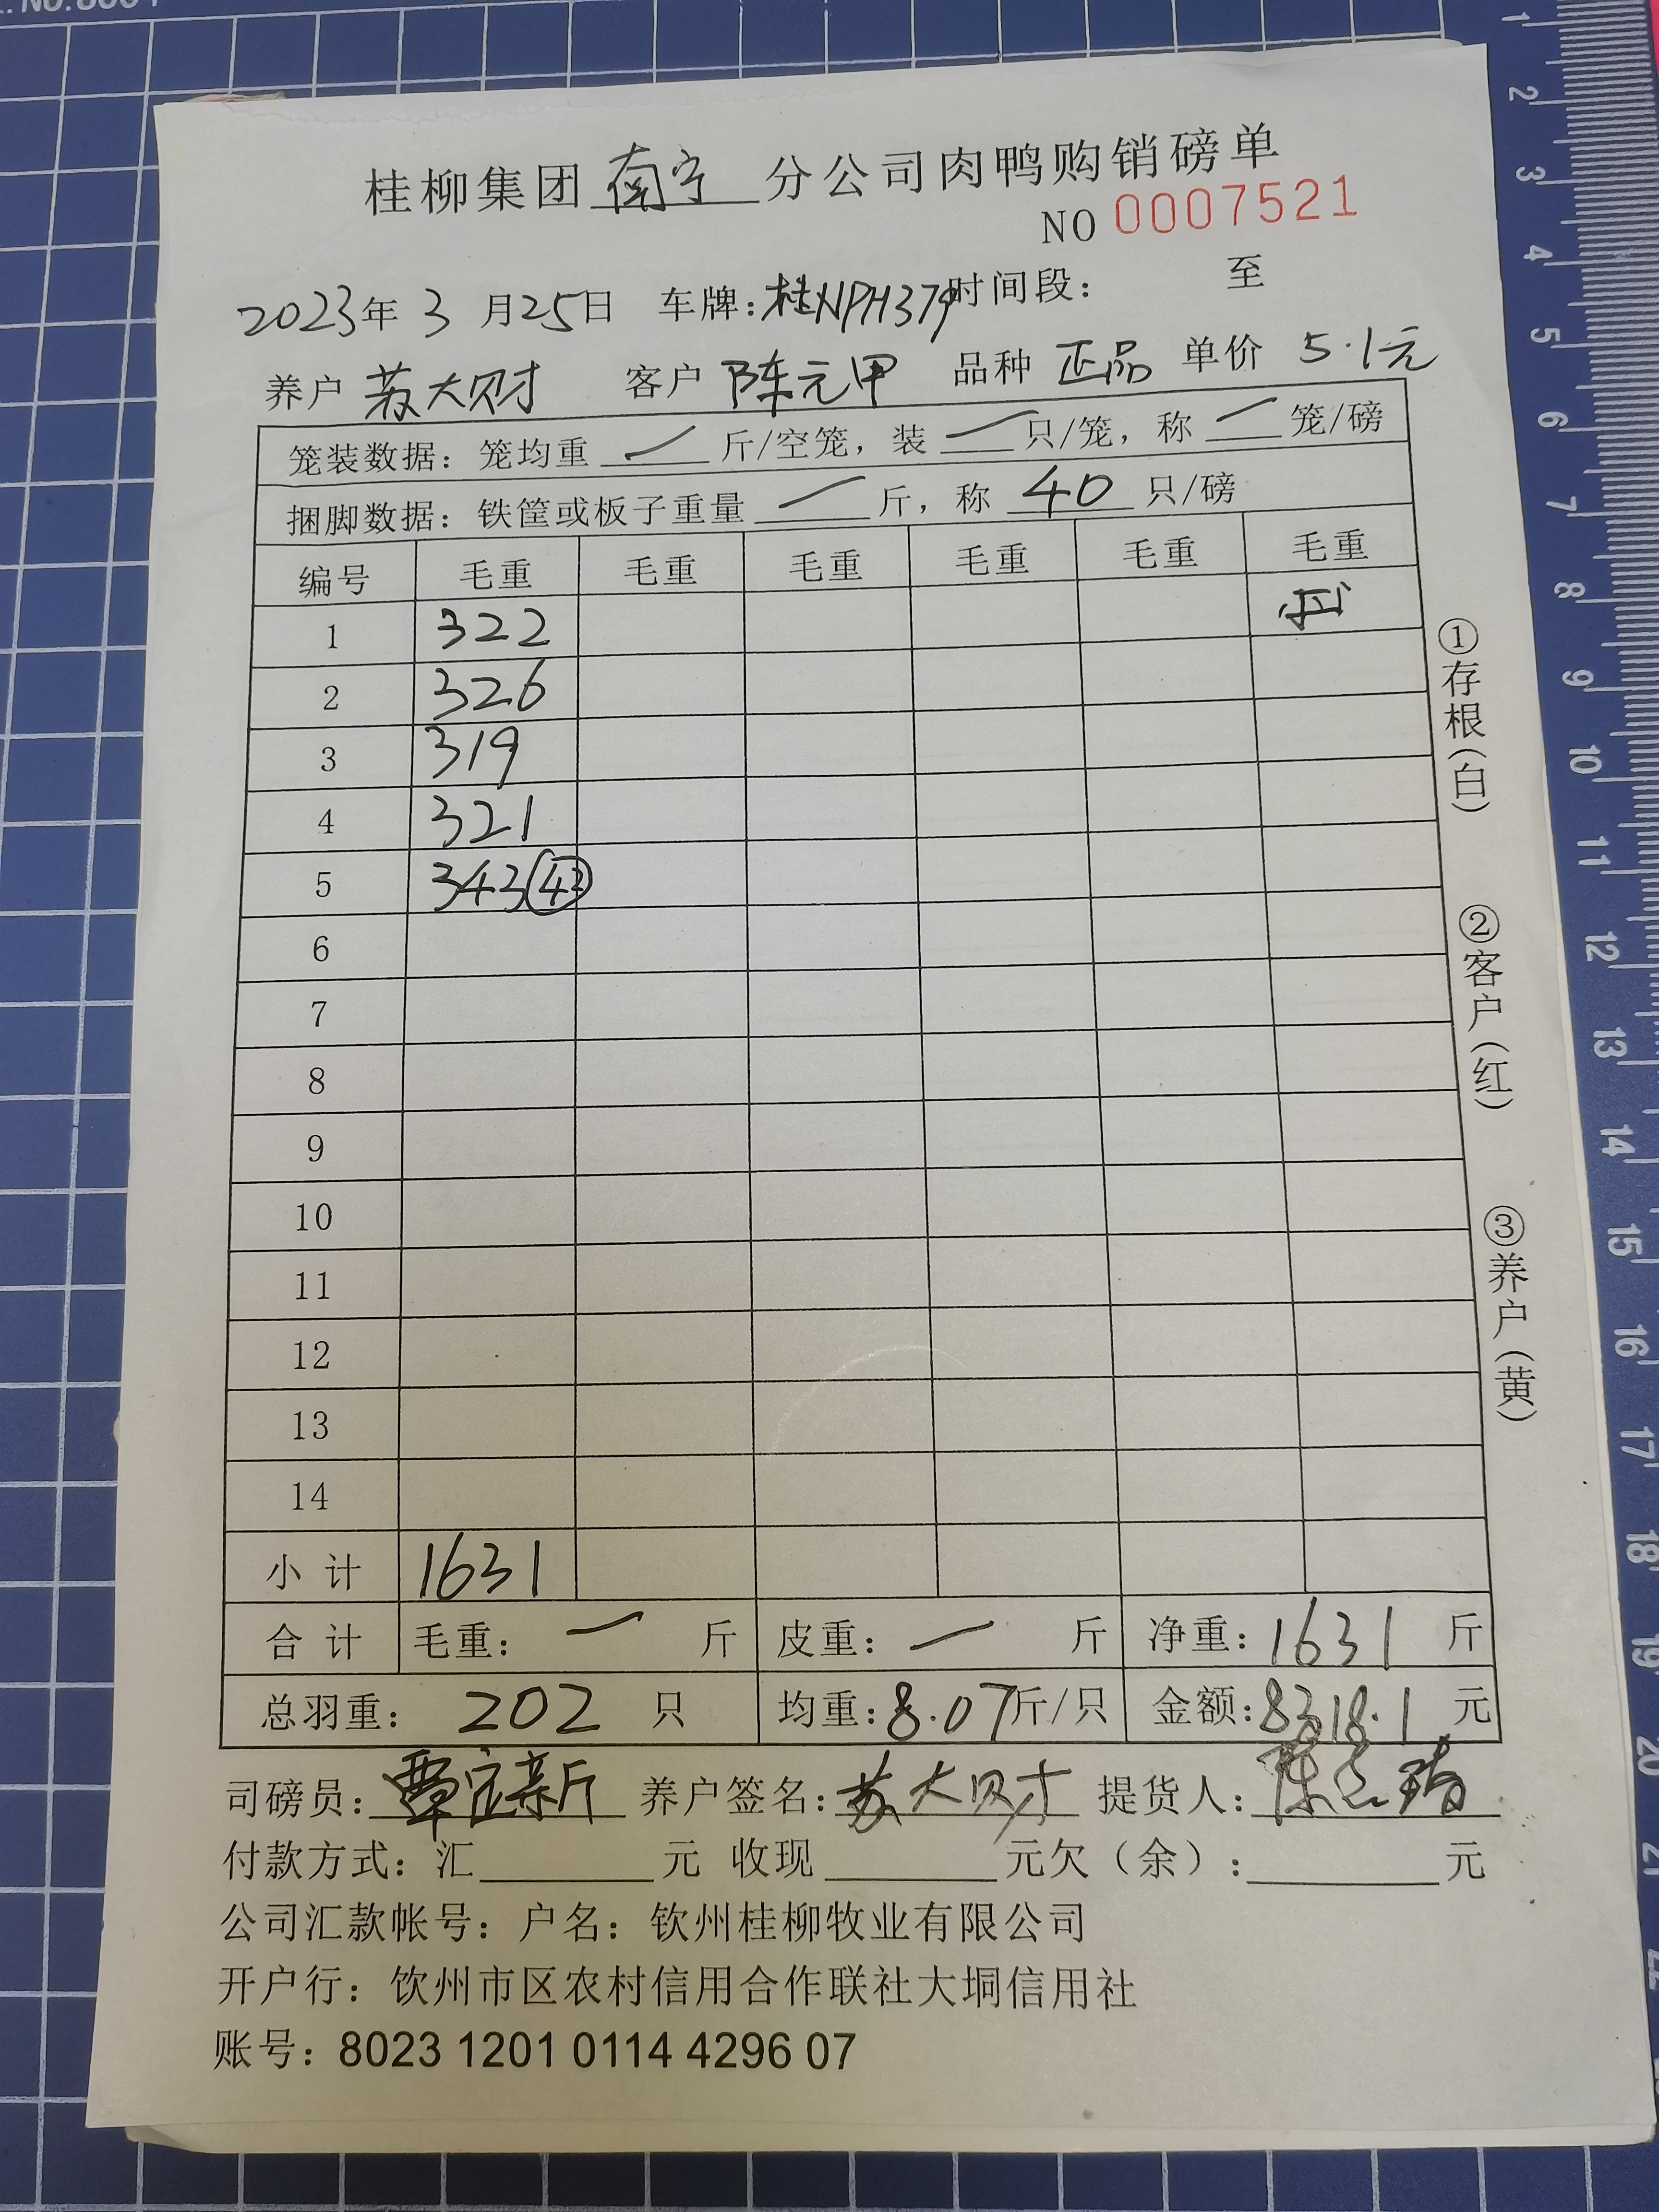 桂柳集团 南宁 分公司肉鸭购销磅单
NO 0007521
2023年 3 月25日 车牌:桂NPH379时间段: 至
养户 苏大财 客户 陈元甲 品种 正品 单价 5.1元
笼装数据: 笼均重 一 斤/空笼, 装 一 只/笼, 称 一 笼/磅
捆脚数据: 铁筐或板子重量 一 斤, 称 40 只/磅
编号 毛重 毛重 毛重 毛重 毛重 毛重
1 322
2 326
3 319
4 321
5 343 42
6
7
8
9
10
11
12
13
14
小 计 1631
合 计 毛重: 一 斤 皮重: 一 斤 净重: 1631 斤
总羽重: 202 只 均重:8.07斤/只 金额:8318.1 元
司磅员: 养户签名:苏大财 提货人:
付款方式: 汇 元 收现 元欠(余): 元
公司汇款帐号: 户名: 钦州桂柳牧业有限公司
开户行: 饮州市区农村信用合作联社大垌信用社
账号: 8023 1201 0114 4296 07
①存根(白)
②客户(红)
③养户(黄)
1
2
3
4
5
6
7
8
9
10
11
12
13
14
15
16
17
18
19
20
21
22